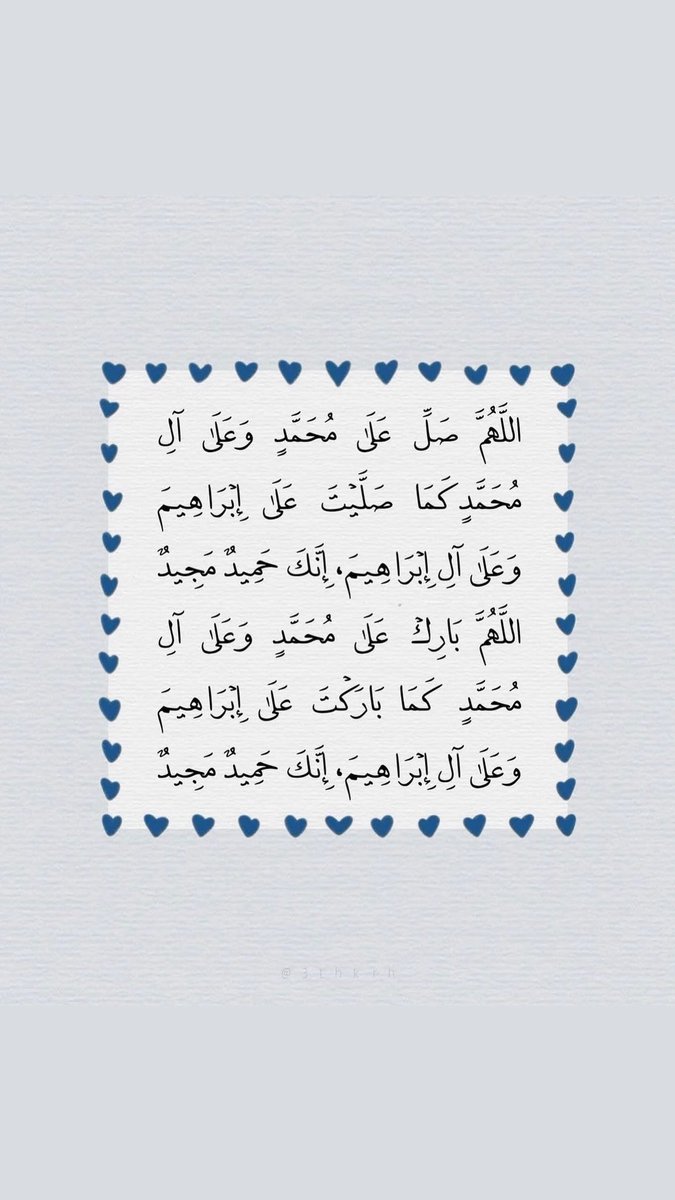 اللَّهُمَّ صَلِّ عَلَىٰ مُحَمَّدٍ وَعَلَىٰ آلِ
مُحَمَّدٍ كَمَا صَلَّيْتَ عَلَىٰ إِبْرَاهِيمَ
وَعَلَىٰ آلِ إِبْرَاهِيمَ، إِنَّكَ حَمِيدٌ مَجِيدٌ
اللَّهُمَّ بَارِكْ عَلَىٰ مُحَمَّدٍ وَعَلَىٰ آلِ
مُحَمَّدٍ كَمَا بَارَكْتَ عَلَىٰ إِبْرَاهِيمَ
وَعَلَىٰ آلِ إِبْرَاهِيمَ، إِنَّكَ حَمِيدٌ مَجِيدٌ
@3thkrh